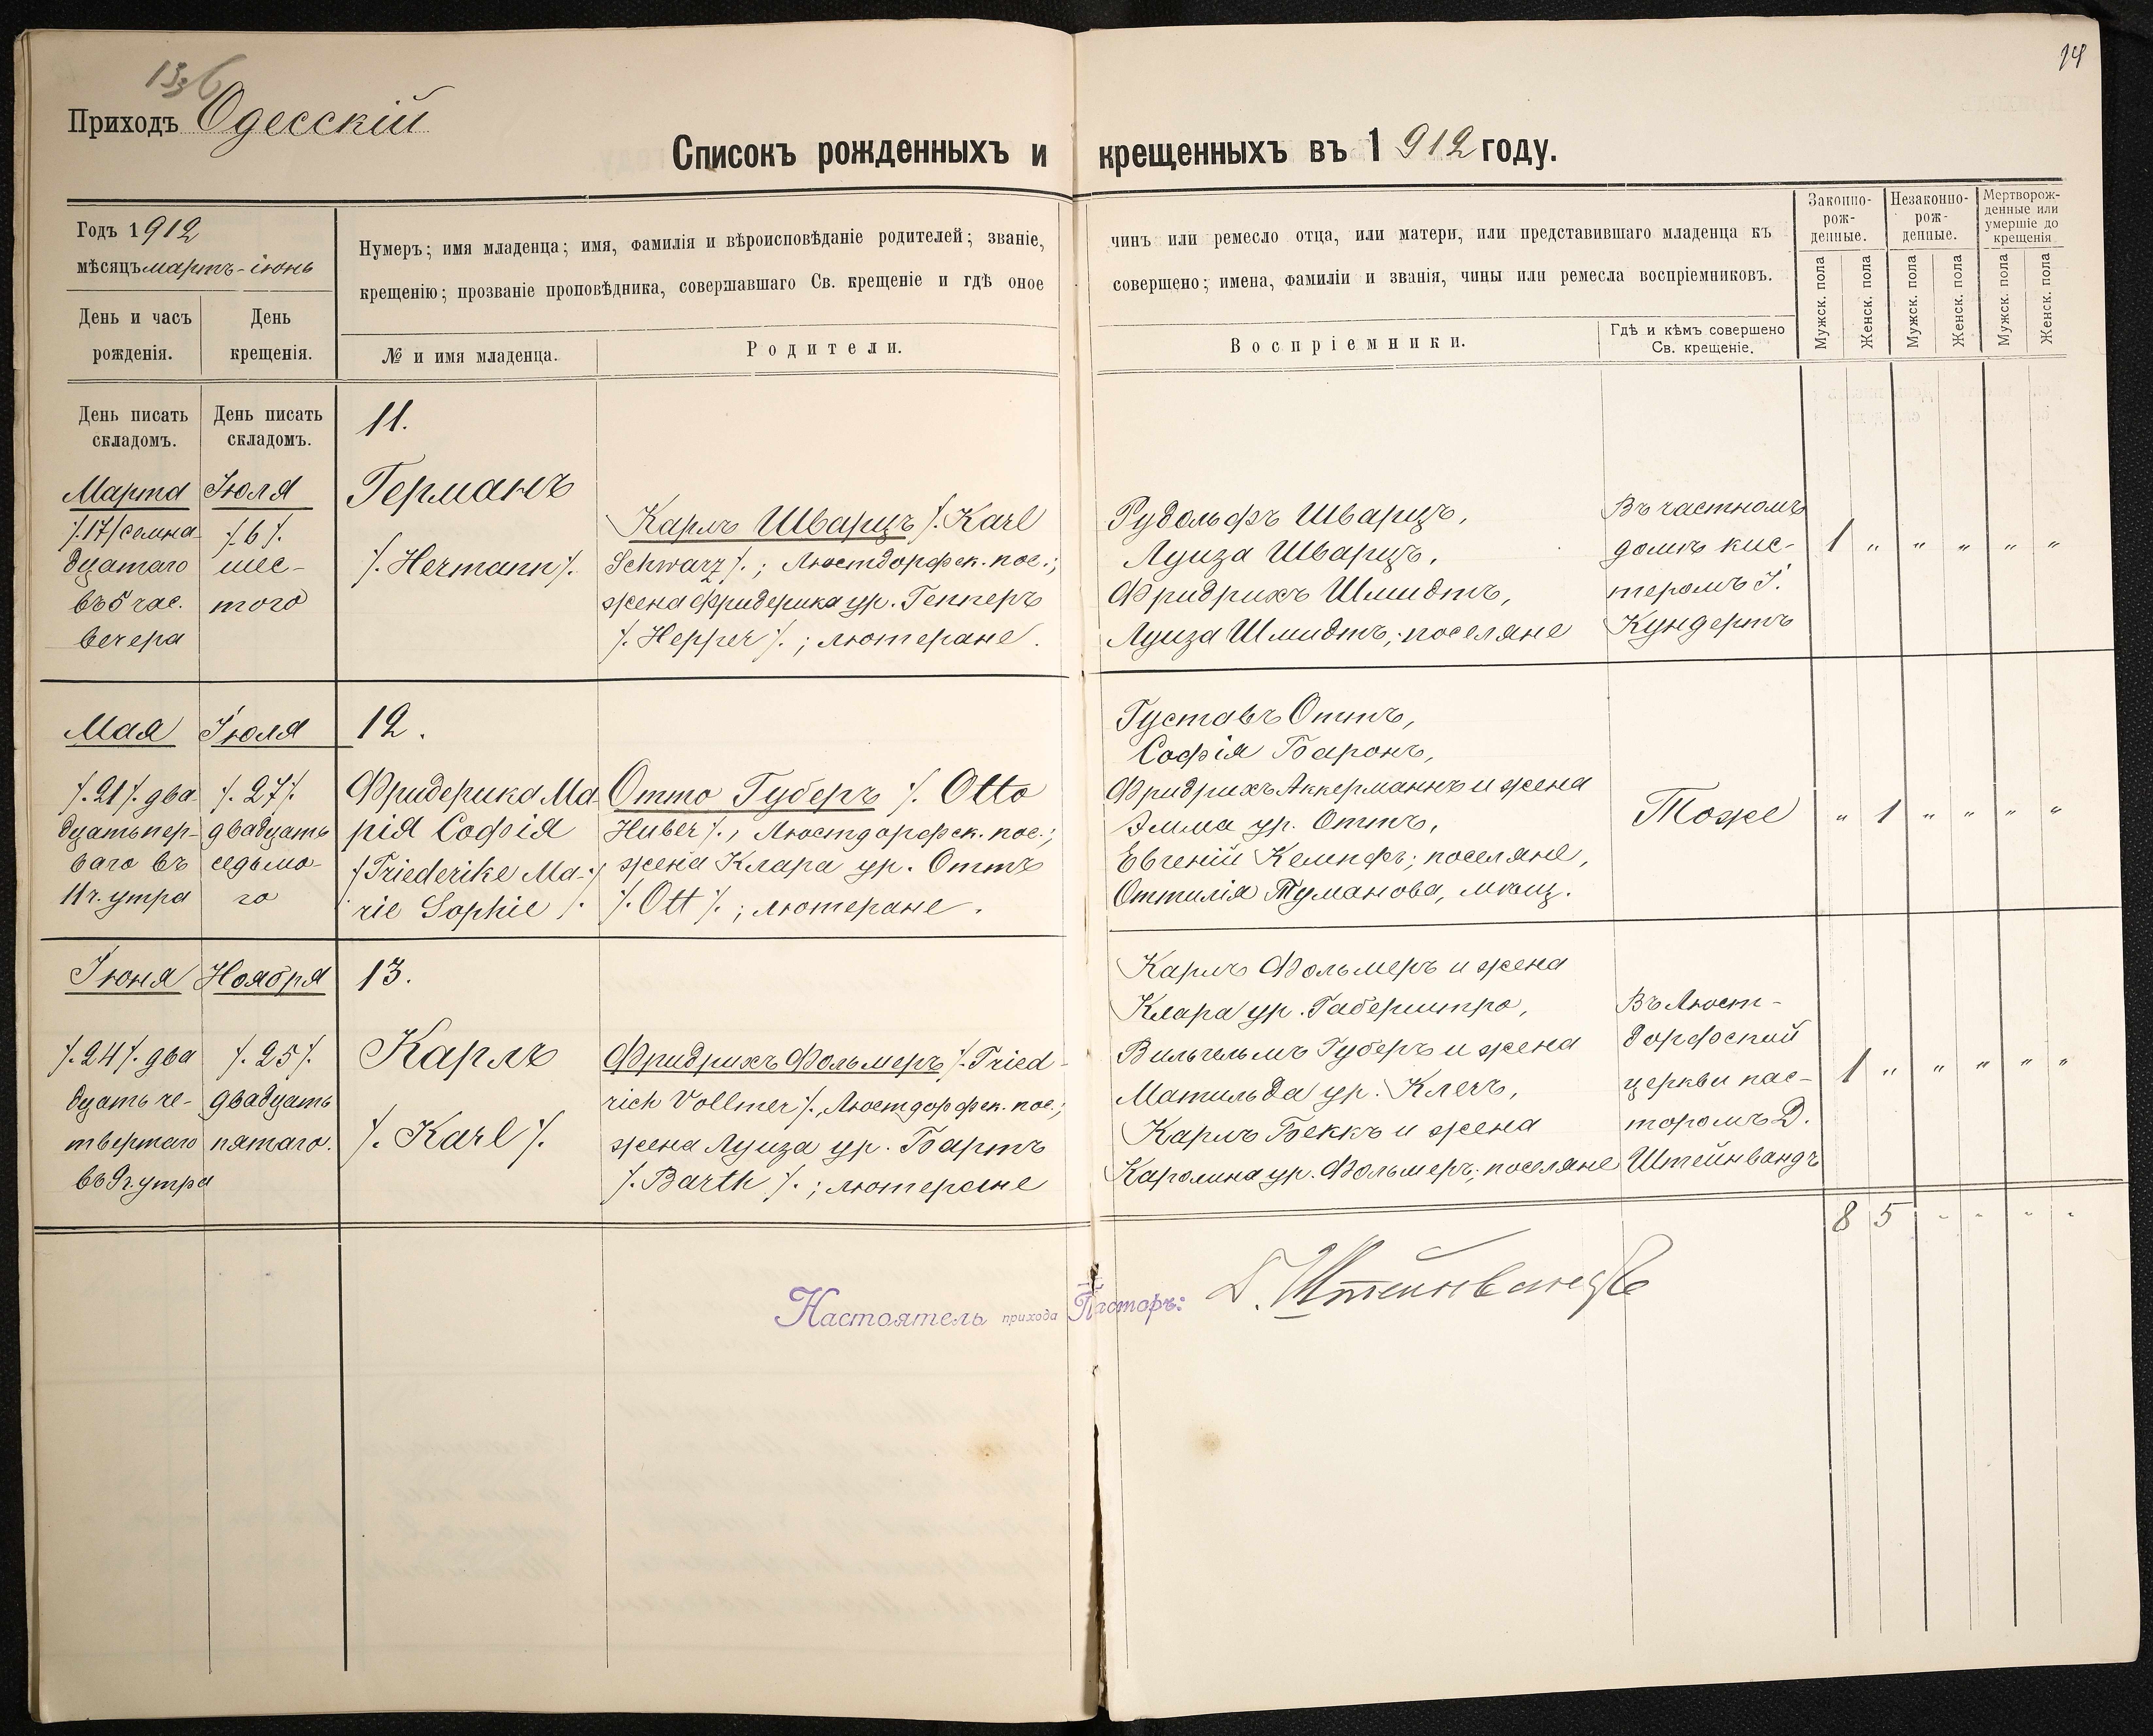 136
14
Приходъ Одесскій
Списокъ рожденныхъ и крещенныхъ въ 1912 году.
Годъ 1912
мѣсяцъ мартъ-іюнь
День и часъ
рожденія.
День
крещенія.
Нумеръ; имя младенца; имя, фамилія и вѣроисповѣданіе родителей; званіе,
крещенію; прозваніе проповѣдника, совершавшаго Св. крещеніе и гдѣ оное
№ и имя младенца.
Родители.
чинъ или ремесло отца, или матери, или представившаго младенца къ
совершено; имена, фамиліи и званія, чины или ремесла воспріемниковъ.
Воспріемники.
Гдѣ и кѣмъ совершено
Св. крещеніе.
Законно-
рож-
денные.
Незаконно-
рож-
денные.
Мертворож-
денные или
умершіе до
крещенія
Мужск. пола
Женск. пола
Мужск. пола
Женск. пола
Мужск. пола
Женск. пола
День писать
складомъ.
День писать
складомъ.
11.
Марта
/.17/семна-
дцатаго
въ 5 час.
вечера
Іюля
/.6/.
шес-
того
Германъ
/.Hermann/.
Карлъ Шварцъ /.Karl
Schwarz/.; Люстдорфск. пос.;
жена Фридерика ур. Гепперъ
/.Hepper/.; лютеране.
Рудольфъ Шварцъ,
Луиза Шварцъ,
Фридрихъ Шмидтъ,
Луиза Шмидтъ; поселяне
Въ частномъ
домѣ кис-
теромъ І.
Кундертъ
1 " " " " "
Мая
/.21/. два-
дцать пер-
ваго въ
11 ч. утра
Іюля
/.27/.
двадцать
седьмо-
го
12.
Фридерика Ма-
рія Софія
/Friederike Ma-
rie Sophie/.
Отто Губеръ /.Otto
Huber/., Люстдорфск. пос.;
жена Клара ур. Оттъ
/.Ott/.; лютеране.
Густавъ Оттъ,
Софія Баронъ,
Фридрихъ Аккерманнъ и жена
Эмма ур. Оттъ,
Евгеній Кемпфъ; поселяне,
Оттилія Туманова, мѣщ.
Тоже
" 1 " " " "
Іюня
/.24/. два
дцать че-
твертаго
въ 9 ч. утра
Ноября
/.25/.
двадцать
пятаго.
13.
Карлъ
/.Karl/.
Фридрихъ Фольмеръ /.Fried-
rich Vollmer/., Люстдорфск. пос.;
жена Луиза ур. Бартъ
/.Barth/.; лютеране
Карлъ Фольмеръ и жена
Клара ур. Габерштро,
Вильгельмъ Губеръ и жена
Матильда ур. Клечъ,
Карлъ Беккъ и жена
Каролина ур. Фольмеръ; поселяне
Въ Люст-
дорфской
церкви пас-
торомъ Д.
Штейнвандъ
1 " " " " "
8 5 " " " "
Настоятель прихода Пасторъ: Д. Штейнвандъ